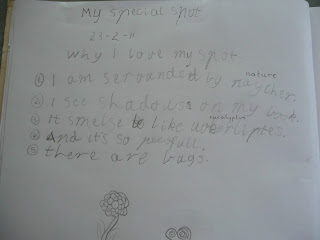 My special spot
23-2-11
Why I love my spot
① I am servanded by naycher. nature
② I see shadows on my book.
③ It smelse like ucerliptes. eucalyptus
④ And it's so peefull.
⑤ there are bugs.